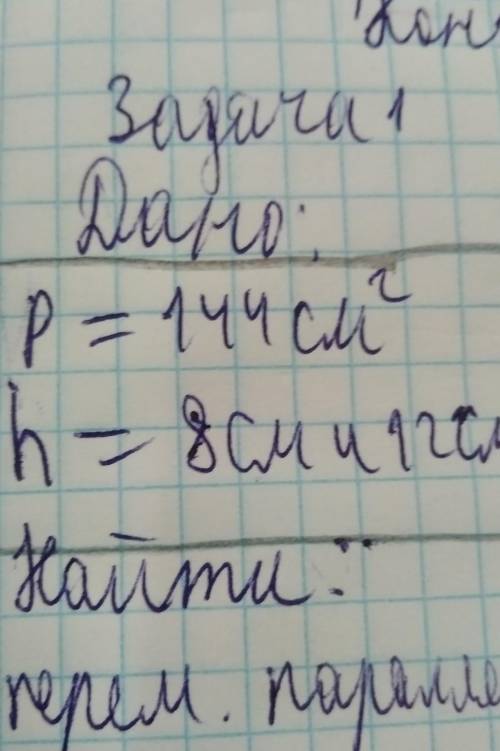 Кон
Задача 1
Дано:
P = 144 см²
h = 8см и 12см
Найти:
перем. паралле